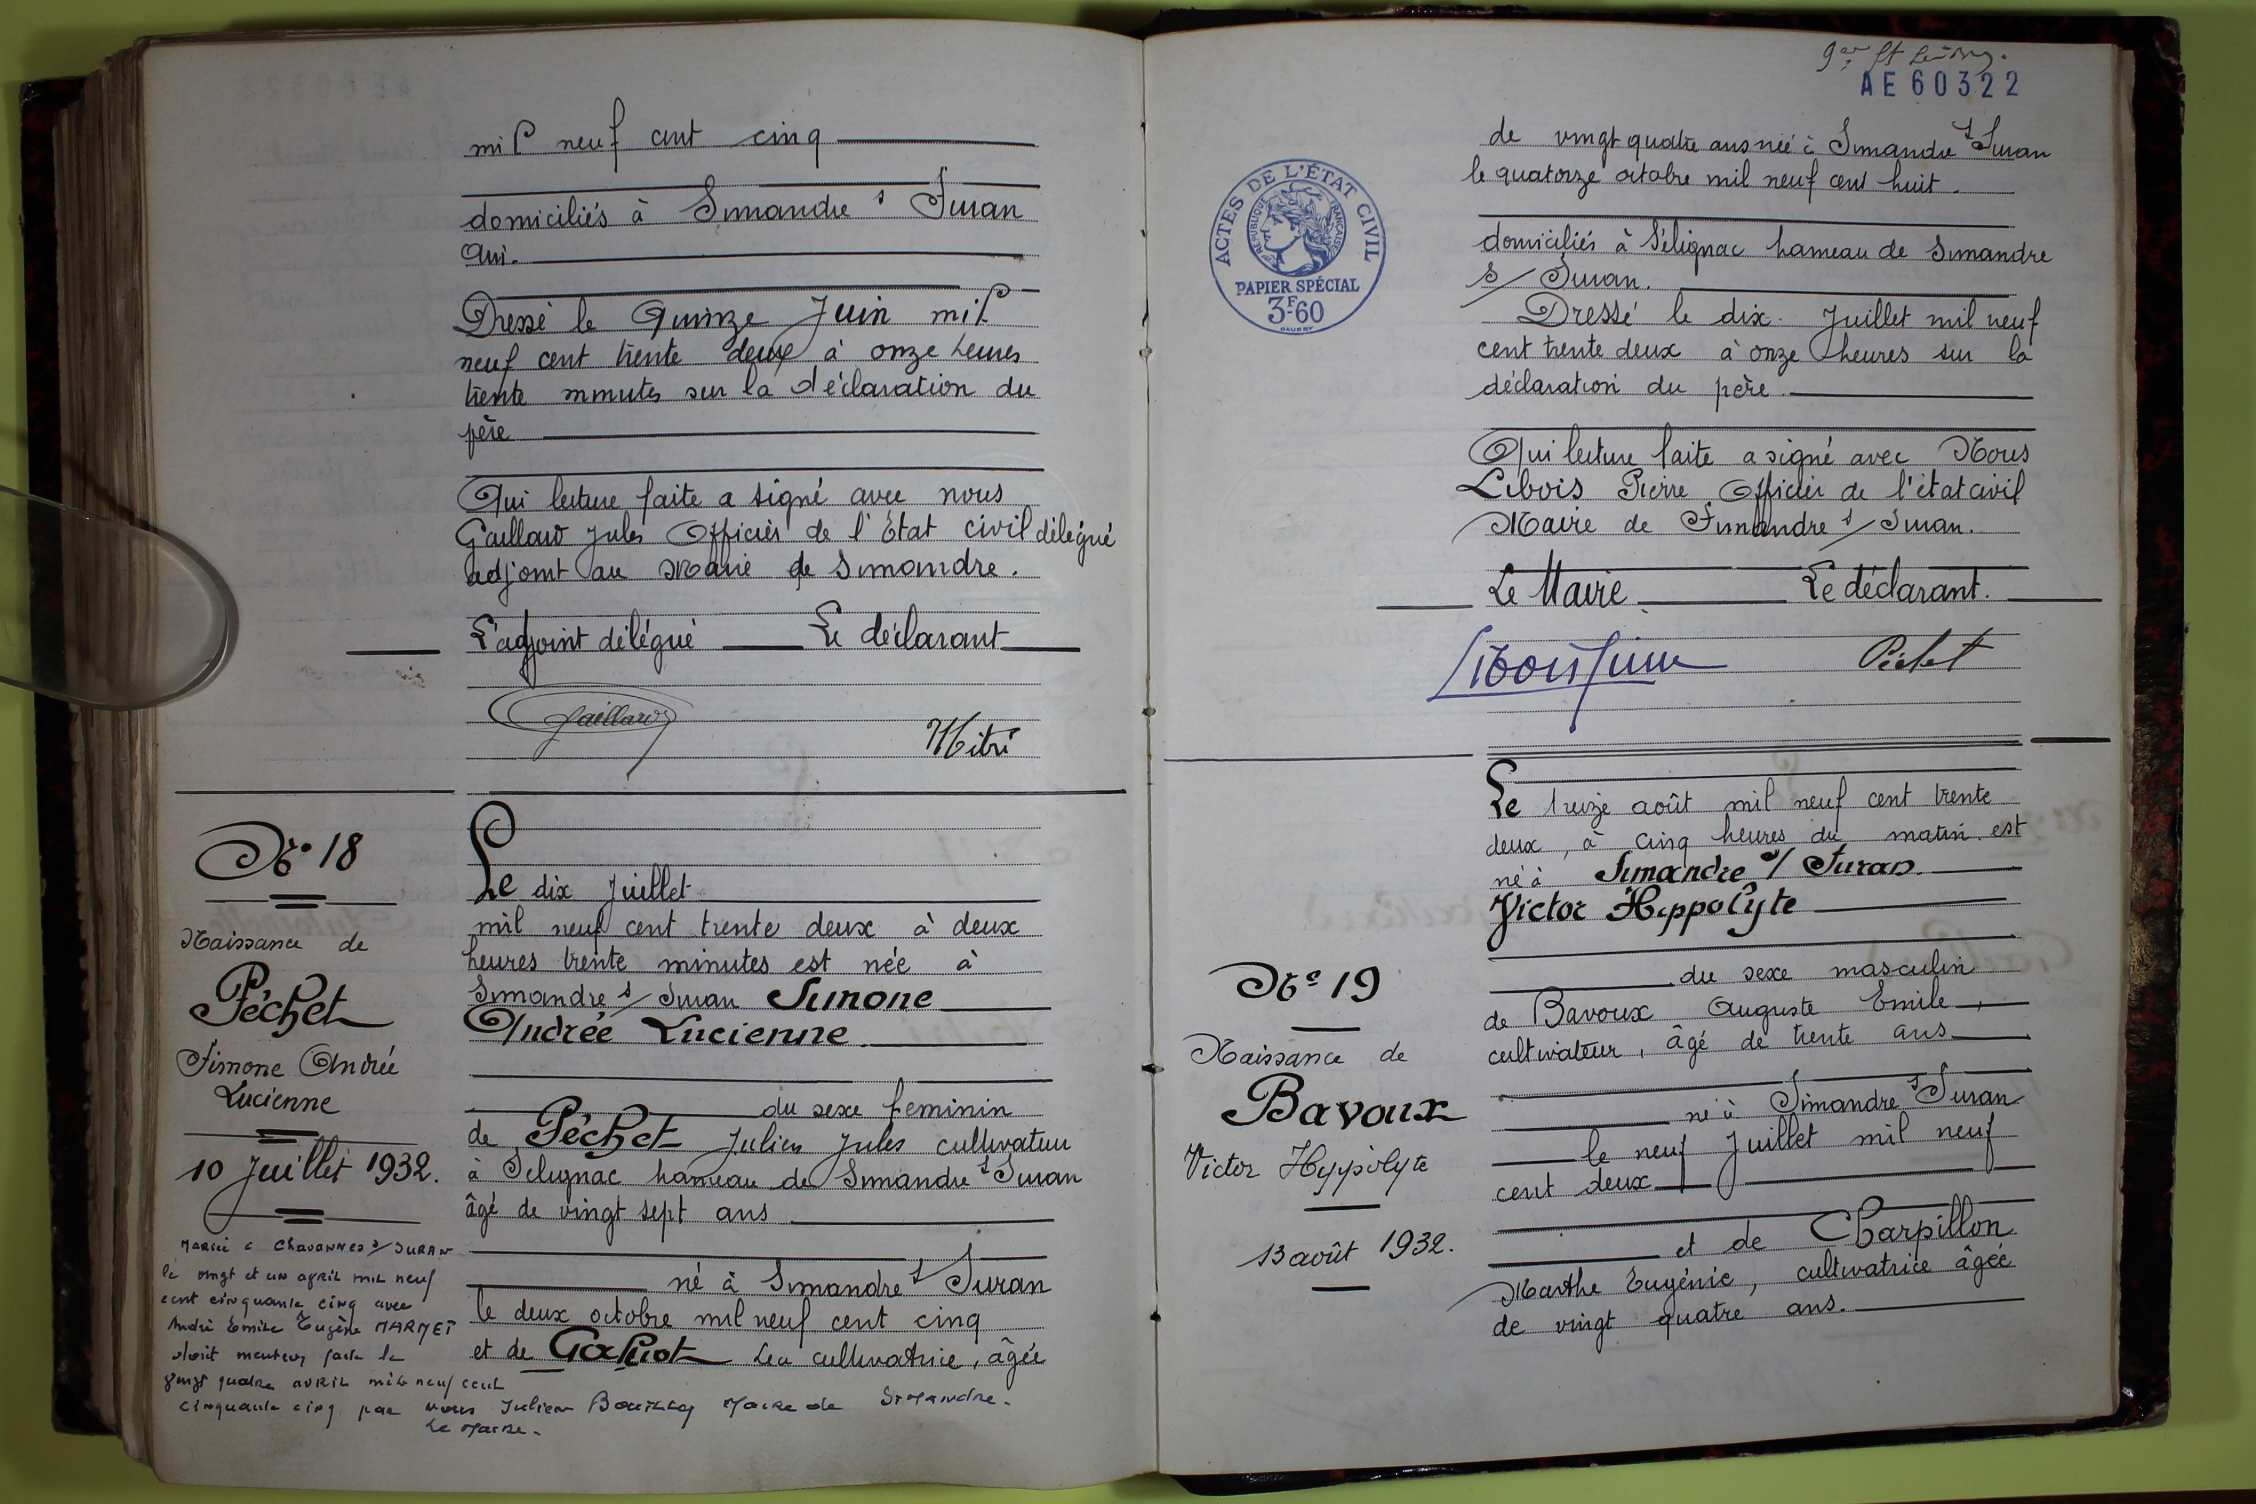 mil neuf cent cinq
domiciliés à Simandre s Suran
qui.
Dressé le Quinze Juin mil
neuf cent trente deux à onze heures
trente minutes sur la déclaration du
père
Qui lecture faite a signé avec nous
Gaillard Jules Officier de l'État civil délégué
adjoint au Maire de Simandre.
L'adjoint délégué Le déclarant
Gaillard
Mitri
N° 18
Naissance de
Péchet
Simone Andrée
Lucienne
10 Juillet 1932.
Mariée à Chavannes s/ Suran
le vingt et un avril mil neuf
cent cinquante cinq avec
André Emile Eugène MARMET
dont mention faite le
vingt quatre avril mil neuf cent
cinquante cinq par nous Julien Maire de Simandre.
Le Maire.
Le dix Juillet
mil neuf cent trente deux à deux
heures trente minutes est née à
Simandre s/ Suran Simone
Andrée Lucienne
du sexe feminin
de Péchet Julien Jules cultivateur
à Sélignac hameau de Simandre s Suran
âgé de vingt sept ans
né à Simandre s Suran
le deux octobre mil neuf cent cinq
et de Léa cultivatrice, âgée
AE60322
ACTES DE L'ÉTAT CIVIL
RÉPUBLIQUE FRANÇAISE
PAPIER SPÉCIAL
3F60
de vingt quatre ans née à Simandre s Suran
le quatorze octobre mil neuf cent huit.
domiciliés à Sélignac hameau de Simandre
s/ Suran.
Dressé le dix Juillet mil neuf
cent trente deux à onze heures sur la
déclaration du père
Qui lecture faite a signé avec Nous
Libois Pierre Officier de l'état civil
Maire de Simandre s/ Suran.
Le Maire Le déclarant.
Libois Pierre
Péchet
N° 19
Naissance de
Bavoux
Victor Hyppolyte
13 août 1932.
Le treize août mil neuf cent trente
deux, à cinq heures du matin est
né à Simandre s/ Suran
Victor Hippolyte
du sexe masculin
de Bavoux Auguste Emile,
cultivateur, âgé de trente ans
né à Simandre s Suran
le neuf Juillet mil neuf
cent deux
et de Charpillon
Marthe Eugénie, cultivatrice âgée
de vingt quatre ans.